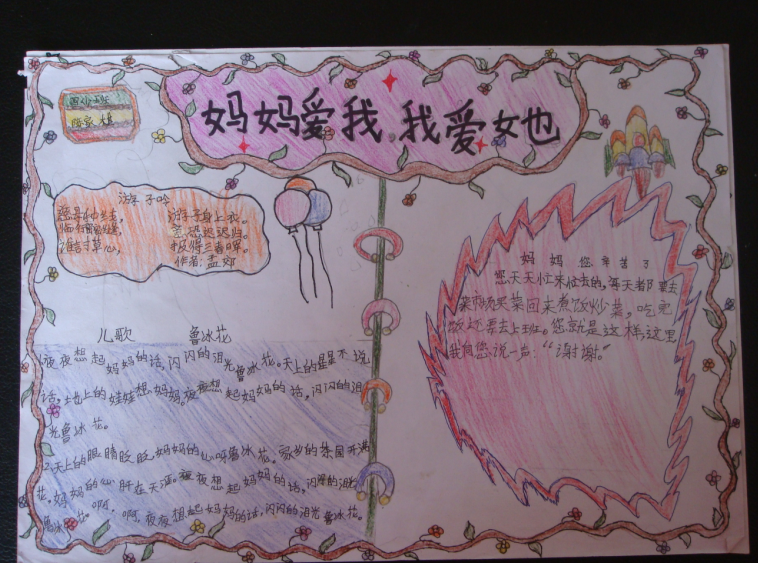 妈妈爱我,我爱她
游子吟
慈母手中线, 游子身上衣。
临行密密缝, 意恐迟迟归。
谁言寸草心, 报得三春晖。
作者:孟郊
儿歌 鲁冰花
1夜夜想起妈妈的话,闪闪的泪光鲁冰花。天上的星星不说
话,地上的娃娃想妈妈。夜夜想起妈妈的话,闪闪的泪
光鲁冰花。
2天上的眼睛眨眨,妈妈的心呀鲁冰花。家乡的茶园开满
花。妈妈的心肝在天涯。夜夜想起妈妈的话,闪闪的泪光
鲁冰花。啊 啊,夜夜想起妈妈的话,闪闪的泪光鲁冰花。
妈妈您辛苦了
您天天忙来忙去的,每天都要去
菜市场买菜回来煮饭炒菜,吃完
饭还要去上班。您就是这样,这里
我向您说一声:“谢谢。”